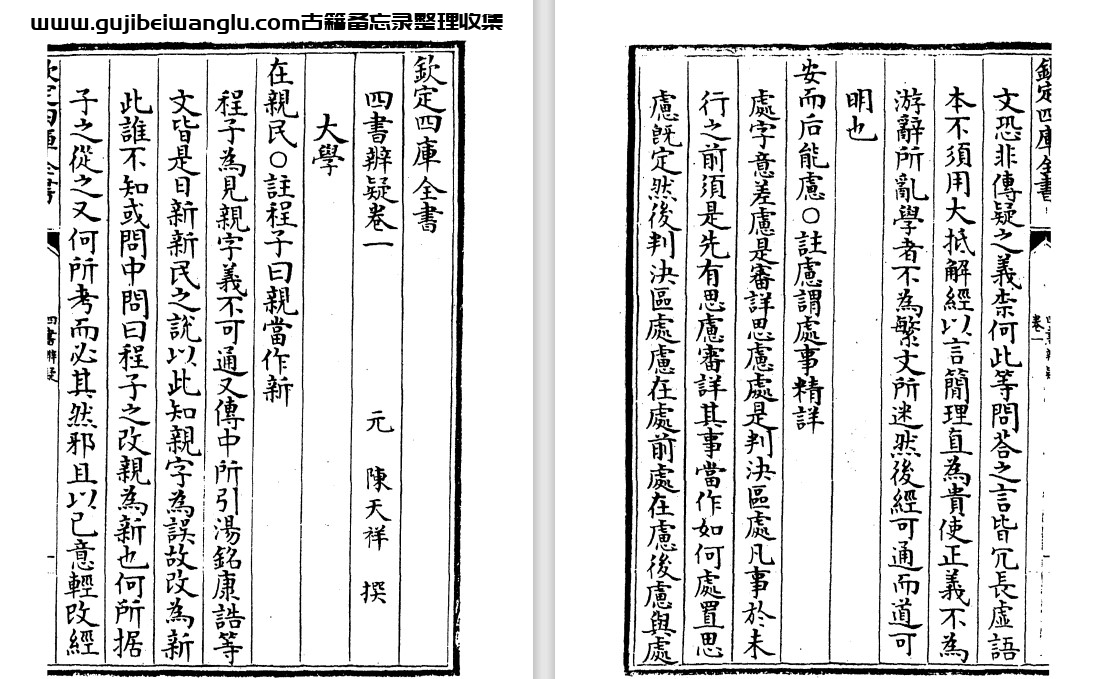 www.gujibeiwanglu.com古籍备忘录整理收集
欽定四庫全書
四書辨疑卷一 元 陳天祥 撰
大學
在親民○註程子曰親當作新
程子為見親字義不可通又傳中所引湯銘康誥等
文皆是日新新民之說以此知親字為誤故改為新
此誰不知或問中問曰程子之改親為新也何所据
子之從之又何所考而必其然邪且以已意輕改經
欽定四庫全書 四書辨疑 一
欽定四庫全書 卷一
文恐非傳疑之義柰何此等問荅之言皆冗長虛語
本不須用大抵解經以言簡理直為貴使正義不為
游辭所亂學者不為繁文所迷然後經可通而道可
明也
安而后能慮○註慮謂處事精詳
處字意差慮是審詳思慮處是判決區處凡事於未
行之前須是先有思慮審詳其事當作如何處置思
慮旣定然後判決區處慮在處前處在慮後慮與處